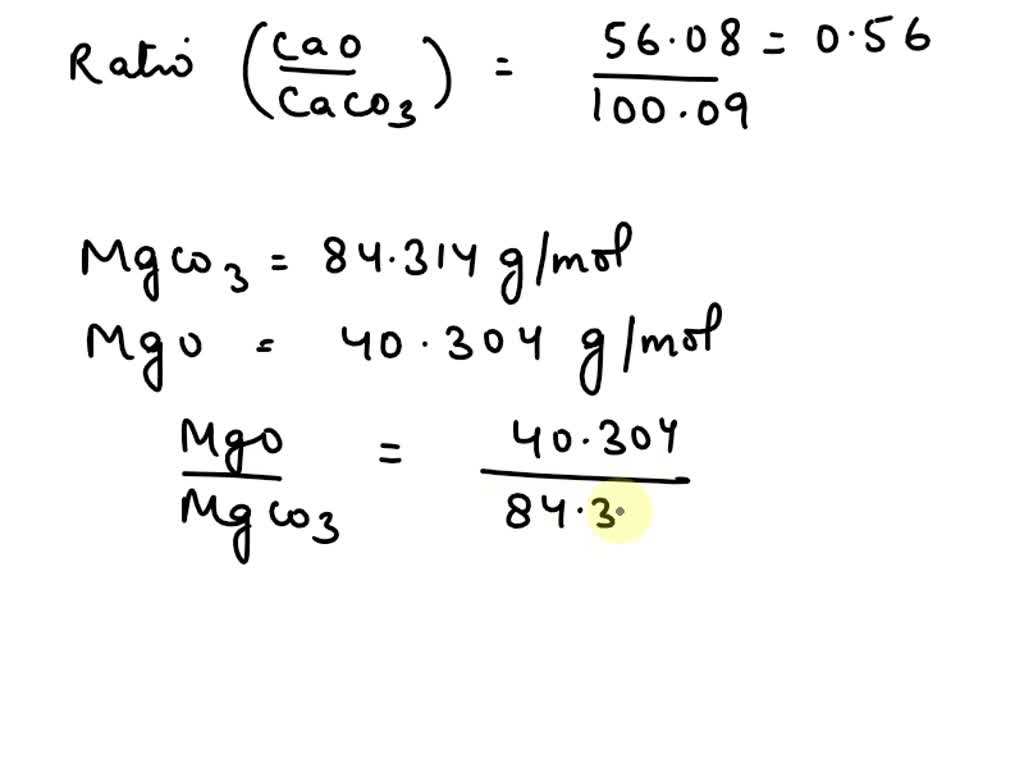 Ratio (CaO / CaCO3) = 56.08 / 100.09 = 0.56
MgCO3 = 84.314 g/mol
MgO = 40.304 g/mol
MgO / MgCO3 = 40.304 / 84.3